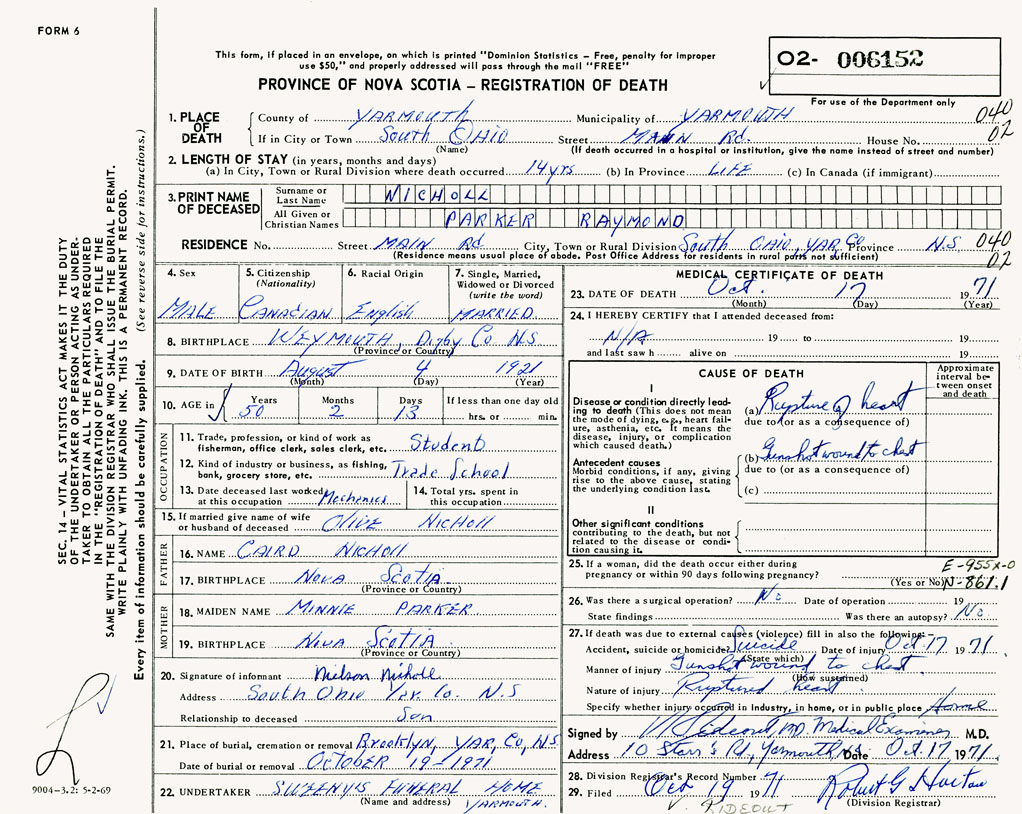 FORM 6
This form, if placed in an envelope, on which is printed "Dominion Statistics – Free, penalty for improper
use $50," and properly addressed will pass through the mail "FREE"
PROVINCE OF NOVA SCOTIA – REGISTRATION OF DEATH
02- 006152
For use of the Department only
SEC. 14 – VITAL STATISTICS ACT MAKES IT THE DUTY
OF THE UNDERTAKER OR PERSON ACTING AS UNDER-
TAKER TO OBTAIN ALL THE PARTICULARS REQUIRED
IN THE "REGISTRATION OF DEATH" AND TO FILE THE
SAME WITH THE DIVISION REGISTRAR WHO SHALL ISSUE THE BURIAL PERMIT.
WRITE PLAINLY WITH UNFADING INK. THIS IS A PERMANENT RECORD.
Every item of information should be carefully supplied. (See reverse side for instructions.)
1. PLACE OF DEATH
County of YARMOUTH Municipality of YARMOUTH 040
If in City or Town South OHIO Street MAIN Rd. House No. 02
(Name) (If death occurred in a hospital or institution, give the name instead of street and number)
2. LENGTH OF STAY (in years, months and days)
(a) In City, Town or Rural Division where death occurred 14 yrs (b) In Province LIFE (c) In Canada (if immigrant)
3. PRINT NAME OF DECEASED
Surname or Last Name NICHOLL
All Given or Christian Names PARKER RAYMOND
RESIDENCE No. Street MAIN Rd City, Town or Rural Division South OHIO, YAR Co Province N.S 040
(Residence means usual place of abode. Post Office Address for residents in rural parts not sufficient) 02
4. Sex
MALE
5. Citizenship (Nationality)
CANADIAN
6. Racial Origin
English
7. Single, Married, Widowed or Divorced (write the word)
MARRIED.
8. BIRTHPLACE WEYMOUTH, Digby Co N.S
(Province or Country)
9. DATE OF BIRTH August 4 1921
(Month) (Day) (Year)
10. AGE in Years 50 Months 2 Days 13 If less than one day old hrs. or min.
OCCUPATION
11. Trade, profession, or kind of work as
fisherman, office clerk, sales clerk, etc. Student
12. Kind of industry or business, as fishing,
bank, grocery store, etc. Trade School
13. Date deceased last worked
at this occupation Mechanics
14. Total yrs. spent in
this occupation
15. If married give name of wife
or husband of deceased OLIVE NICHOLL
FATHER
16. NAME CAIRD NICHOLL
17. BIRTHPLACE NOVA SCOTIA
(Province or Country)
MOTHER
18. MAIDEN NAME MINNIE PARKER
19. BIRTHPLACE NOVA SCOTIA
(Province or Country)
20. Signature of informant Nelson Nicholl
Address South Ohio Yar. Co. N.S
Relationship to deceased Son
21. Place of burial, cremation or removal Brooklyn, YAR, Co, N.S
Date of burial or removal OCTOBER 19 – 1971
22. UNDERTAKER SWEENY'S FUNERAL HOME
(Name and address) YARMOUTH.
9004-3.2: 5-2-69
MEDICAL CERTIFICATE OF DEATH
23. DATE OF DEATH Oct. 17 1971
(Month) (Day) (Year)
24. I HEREBY CERTIFY that I attended deceased from:
N/A 19 to 19
and last saw h alive on 19
CAUSE OF DEATH
Approximate interval be-tween onset and death
I
Disease or condition directly lead-
ing to death (This does not mean
the mode of dying, e.g., heart fail-
ure, asthenia, etc. It means the
disease, injury, or complication
which caused death.)
(a) Rupture of heart
due to (or as a consequence of)
Antecedent causes
Morbid conditions, if any, giving
rise to the above cause, stating
the underlying condition last.
(b) Gunshot wound to chest
due to (or as a consequence of)
(c)
II
Other significant conditions
contributing to the death, but not
related to the disease or condi-
tion causing it.
25. If a woman, did the death occur either during
pregnancy or within 90 days following pregnancy?
(Yes or No)
E-955X-0
N-861.1
26. Was there a surgical operation? No Date of operation 19
State findings Was there an autopsy? No
27. If death was due to external causes (violence) fill in also the following:–
Accident, suicide or homicide? Suicide Date of injury Oct 17 1971
(State which)
Manner of injury Gunshot wound to chest
(How sustained)
Nature of injury Ruptured heart
Specify whether injury occurred in industry, in home, or in public place Home
Signed by Rideout, MD. Medical Examiner M.D.
Address 10 Starr's Rd, Yarmouth, NS Date Oct. 17 1971
28. Division Registrar's Record Number 71
29. Filed Oct 19 1971 Robert G Horton
(Division Registrar)
RIDEOUT